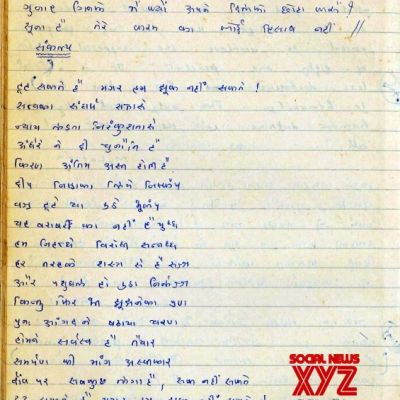 गुनाह गिनके मैं क्यों अपने दिलको छोटा करूं?
सुना है तेरे करम का कोई हिसाब नहीं //
संकल्प
टूट सकते हैं मगर हम झुक नहीं सकते!
सत्यका संघर्ष सत्तासे
न्याय लडता निरंकुशतासे
अंधेरे ने दी चुनौति है
किरण अंतिम अस्त होती है
दीप निष्ठाका लिये निष्कंप
वज्र टूटे या उठे भूकंप
यह बराबरी का नहीं है युध्ध
हम निहत्थे विरोध सन्नध्ध
हर तरहके शस्त्र से है सज्ज
और पशुबल हो उठा निर्लज्ज
किन्तु फिर भी झूझनेका प्रण
पुनः अंगद ने बढाया चरण
होमने सर्वस्व है तैयार
समर्पण की मांग अस्वीकार
दांव पर सबकुछ लगा है, रूक नहीं सकते
टूट सकते है मगर हम झुक नहीं सकते!
SOCIAL NEWS
XYZ